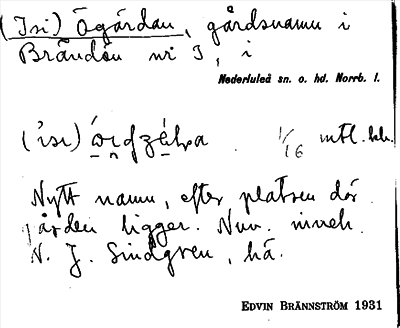 (Isi) Ōgårdan, gårdsnamn i
Brändön nr 3, i
Nederluleå sn. o. hd. Norrb. l.
(ísi) 1/16 mtl. kh.
Nytt namn, efter platsen där
gården ligger. Nuv. inneh.
N. J. Sindgren, hä.
EDVIN BRÄNNSTRÖM 1931